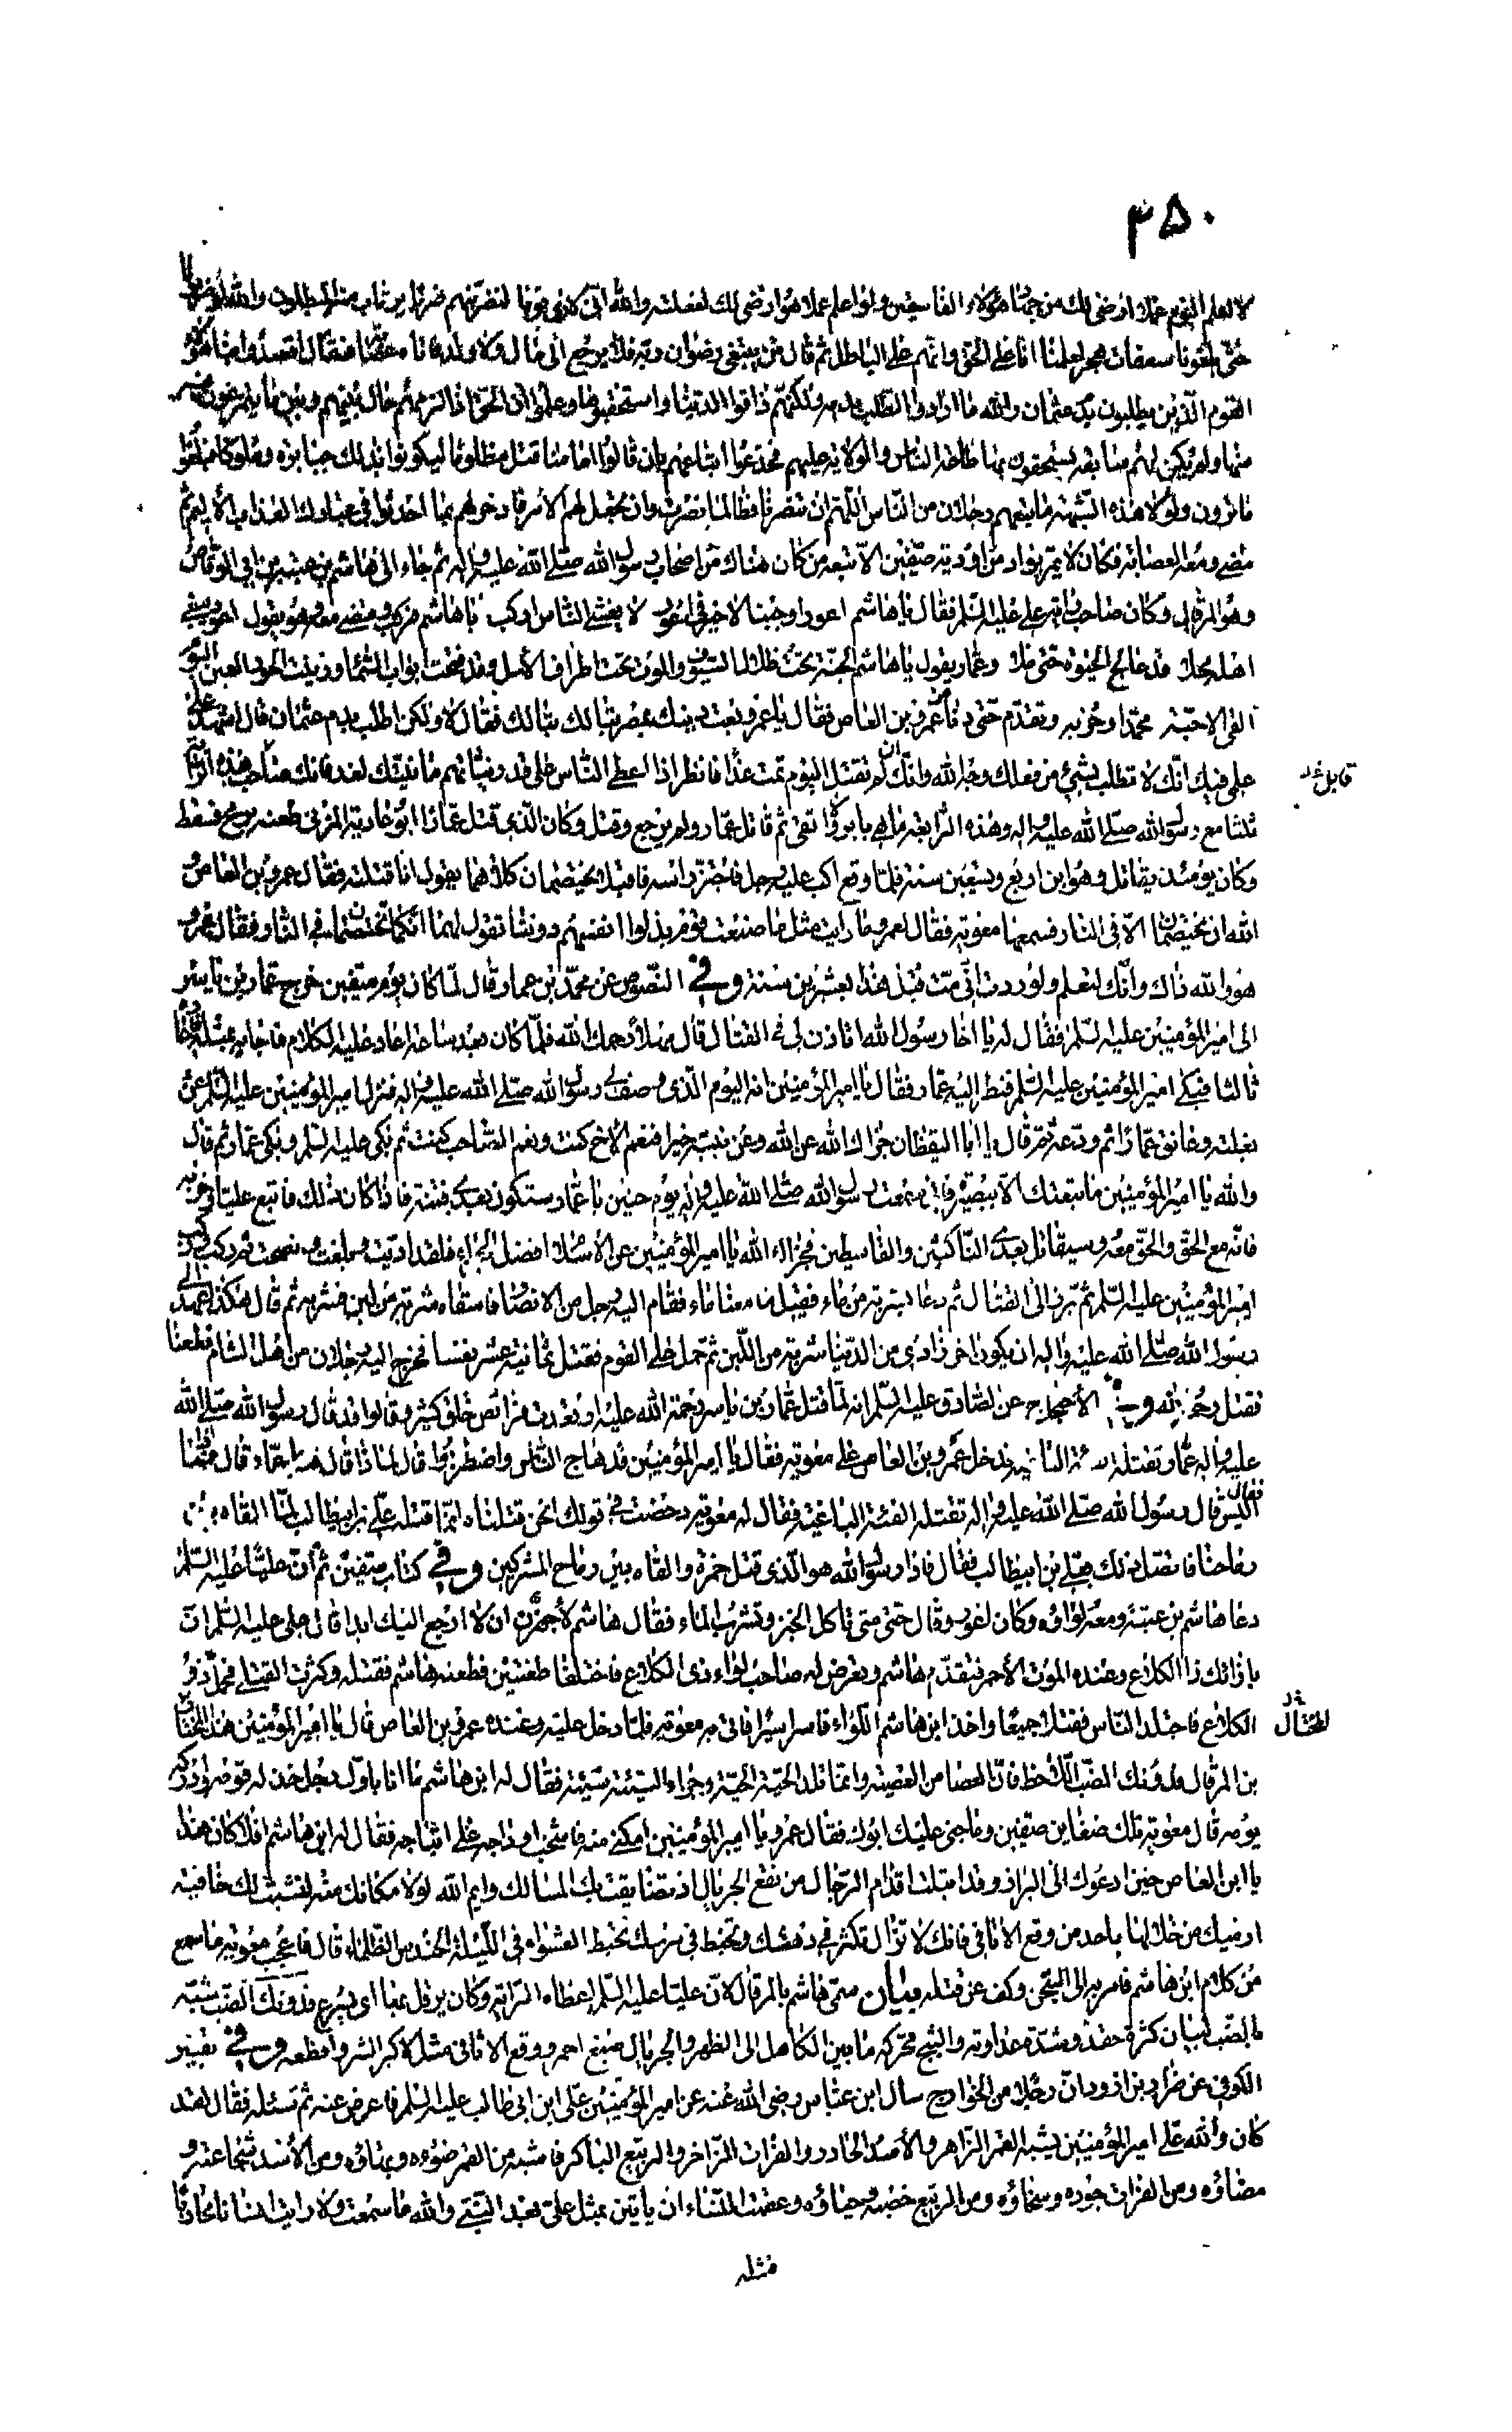 ٣٥٠
لا اعلم اليوم عملا ارضى لك من جهاد هؤلاء الفاسقين ولو اعلم عملا هو ارضى لك لفعلته والله انى لارى قوما لنضربنهم ضربا يرتاب منه المبطلون والله لو ضربونا
حتى يبلغونا سعفات هجر لعلمنا انا على الحق وانهم على الباطل ثم قال من يبتغى رضوان ربه فلا يرجع الى مال ولا ولد فاتاه عصابة فقال اقصدوا بنا هؤلاء
القوم الذين يطلبون بدم عثمان والله ما ارادوا الطلب بدمه ولكنهم ذاقوا الدنيا واستحقبوها وعلموا ان الحق اذا لزمهم حال بينهم وبين ما يتمرغون فيه
منها ولم يكن لهم سابقة يستحقون بها طاعة الناس والولاية عليهم فخدعوا اتباعهم بان قالوا امامنا قتل مظلوما ليكونوا بذلك جبابرة وملوكا فبلغوا
ما ترون ولولا هذه الشبهة ما تبعهم رجلان من الناس اللهم ان تنصرنا فطالما نصرت وان تجعل لهم الامر فادخر لهم بما احدثوا فى عبادك العذاب الاليم ثم
مضى ومعه العصابة فكان لا يمر بواد من اودية صفين الا تبعه من كان هناك من اصحاب رسول الله صلى الله عليه واله ثم جاء الى هاشم بن عتبة بن ابى وقاص
وهو المرقال وكان صاحب راية على عليه السلم فقال يا هاشم اعورا وجبنا لا خير فى اعور لا يغشى الناس اركب يا هاشم فركب ومضى معه وهو يقول اعور يبغى
اهله محلا قد عالج الحيوة حتى ملا وعمار يقول يا هاشم الجنة تحت ظلال السيوف والموت تحت اطراف الاسل وقد فتحت ابواب السماء وزينت الحور العين اليوم
القى الاحبة محمدا وحزبه وتقدم حتى دنا من عمرو بن العاص فقال يا عمرو بعت دينك بمصر تبا لك تبا لك فقال لا ولكن اطلب بدم عثمان قال اشهد على
علمى فيك انك لا تطلب بشيء من فعلك وجه الله وانك ان لم تقتل اليوم تمت غدا فانظر اذا اعطى الناس على قدر نياتهم ما نيتك لغد فانك صاحب هذه الراية
قابل شد
ثلثا مع رسول الله صلى الله عليه واله وهذه الرابعة ما هى بابر ولا اتقى ثم قاتل عمار ولم يرجع وقتل وكان الذى قتل عمارا ابو غادية المزنى طعنه برمح فسقط
وكان يومئذ يقاتل وهو ابن اربع وتسعين سنة فلما وقع اكب عليه رجل فاجتز راسه فاقبلا يختصمان كلاهما يقول انا قتلته فقال عمرو بن العاص
الله ان يختصمان الا فى النار فسمعها معوية فقال لعمرو ما رايت مثل ما صنعت قوم بذلوا انفسهم دوننا تقول لهما انكما تختصمان فى النار فقال عمرو
هو والله ذاك وانك لتعلمه ولوددت انى مت قبل هذا بعشرين سنة وفى النصوص عن محمد بن عمار قال لما كان يوم صفين خرج عمار بن ياسر
الى امير المؤمنين عليه السلم فقال له يا اخا رسول الله اتاذن لى فى القتال قال مهلا رحمك الله فلما كان بعد ساعة اعاد عليه الكلام فاجابه بمثله فاعاد
ثالثا فبكى امير المؤمنين عليه السلم فنظر اليه عمار فقال يا امير المؤمنين انه اليوم الذى وصف لى رسول الله صلى الله عليه واله فنزل امير المؤمنين عليه السلم عن
بغلته وعانق عمارا ثم ودعه ثم قال يا ابا اليقظان جزاك الله عن الله وعن نبيه خيرا فنعم الاخ كنت ونعم الصاحب كنت ثم بكى عليه السلم وبكى عمار ثم قال
والله يا امير المؤمنين ما تبعتك الا ببصيرة فانى سمعت رسول الله صلى الله عليه واله يوم حنين يا عمار ستكون بعدى فتنة فاذا كان ذلك فاتبع عليا وحزبه
فانه مع الحق والحق معه وسيقاتل بعدى الناكثين والقاسطين فجزاك الله يا امير المؤمنين عن الاسلام افضل الجزاء فلقد اديت وبلغت ونصحت ثم ركب وركب
امير المؤمنين عليه السلم ثم برز الى القتال ثم دعا بشربة من ماء فقيل ما معنا ماء فقام اليه رجل من الانصار فاسقاه شربة من لبن فشربه ثم قال هكذا عهد الى
رسول الله صلى الله عليه واله ان يكون اخر زادى من الدنيا شربة من اللبن ثم حمل على القوم فقتل ثمانية عشر نفسا فخرج اليه رجلان من اهل الشام فطعناه
فقتل رحمه الله وفى الاحتجاج عن الصادق عليه السلم انه لما قتل عمار بن ياسر رحمة الله عليه ارتعدت فرائص خلق كثير وقالوا قد قال رسول الله صلى الله
عليه واله عمار تقتله الفئة الباغية فدخل عمرو بن العاص على معوية فقال يا امير المؤمنين قد هاج الناس واضطربوا قال لماذا قال قتل عمار قال فماذا
فقال اليس قال رسول الله صلى الله عليه واله تقتله الفئة الباغية فقال له معوية دحضت فى قولك انحن قتلناه انما قتله على بن ابيطالب لما القاه بين
رماحنا فاتصل ذلك بعلى بن ابيطالب فقال فاذا رسول الله هو الذى قتل حمزة والقاه بين رماح المشركين وفى كتاب صفين ثم ان عليا عليه السلم
دعا هاشم بن عتبة ومعه لواؤه وكان اعور وقال حتى متى تاكل الخبز وتشرب الماء فقال هاشم لاجهدن ان لا ارجع اليك ابدا قال على عليه السلم ان
بازائك ذا الكلاع وعنده الموت الاحمر فتقدم هاشم وتعرض له صاحب لواء ذى الكلاع فاختلفا طعنتين فطعنه هاشم فقتله وكثرت القتلى فحمل ذو
الكلاع فاجتلد الناس فقتلا جميعا واخذ ابن هاشم اللواء فاسر اسيرا فاتى به معوية فلما دخل عليه وعنده عمرو بن العاص قال يا امير المؤمنين هذا المختال
المختال شد
بن المرقال فدونك الضب اللاحظ فان العصا من العصية وانما تلد الحية الحية وجزاء السيئة سيئة فقال له ابن هاشم ما انا باول رجل خذله قومه وادركه
يومه قال معوية تلك ضغاين صفين وما جنى عليك ابوك فقال عمرو يا امير المؤمنين امكنى منه فاشخب اوداجه على اثباجه فقال له ابن هاشم افلا كان هذا
يا ابن العاص حين ادعوك الى البراز وقد ابتلت اقدام الرجال من نقع الجريال اذ تضايقت بك المسالك وايم الله لولا مكانك منه لنشبت لك خافية
ارميك من خلالها باحد من وقع الاثافى فانك لا تزال تكثر فى دهشك وتخبط فى مرسك تخبط العشواء فى الليلة الحندس الظلماء قال فاعجب معوية ما سمع
من كلام ابن هاشم فامر به الى السجن وكف عن قتله بيان سمى هاشم بالمرقال لان عليا عليه السلم اعطاه الراية وكان يرقل بها اى يسرع فدونك الضب شبهه
بالضب لبيان كثرة حقده وشدة عداوته والثبج محركة ما بين الكاهل الى الظهر والجريال صبغ احمر ووقع الاثافى مثل لاكبر الشر وافظعه وفى تفسير
الكوفى عن ضرار بن ازور ان رجلا من الخوارج سال ابن عباس رضى الله عنه عن امير المؤمنين على ابن ابى طالب عليه السلم فاعرض عنه ثم سئله فقال لقد
كان والله على امير المؤمنين يشبه القمر الزاهر والاسد الخادر والفرات الزاخر والربيع الباكر فاشبه من القمر ضوءه وبهاؤه ومن الاسد شجاعته و
مضاؤه ومن الفرات جوده وسخاؤه ومن الربيع خصبه وحياؤه وعقمت النساء ان ياتين بمثل على بعد النبى والله ما سمعت ولا رايت انسانا محاربا
مثله